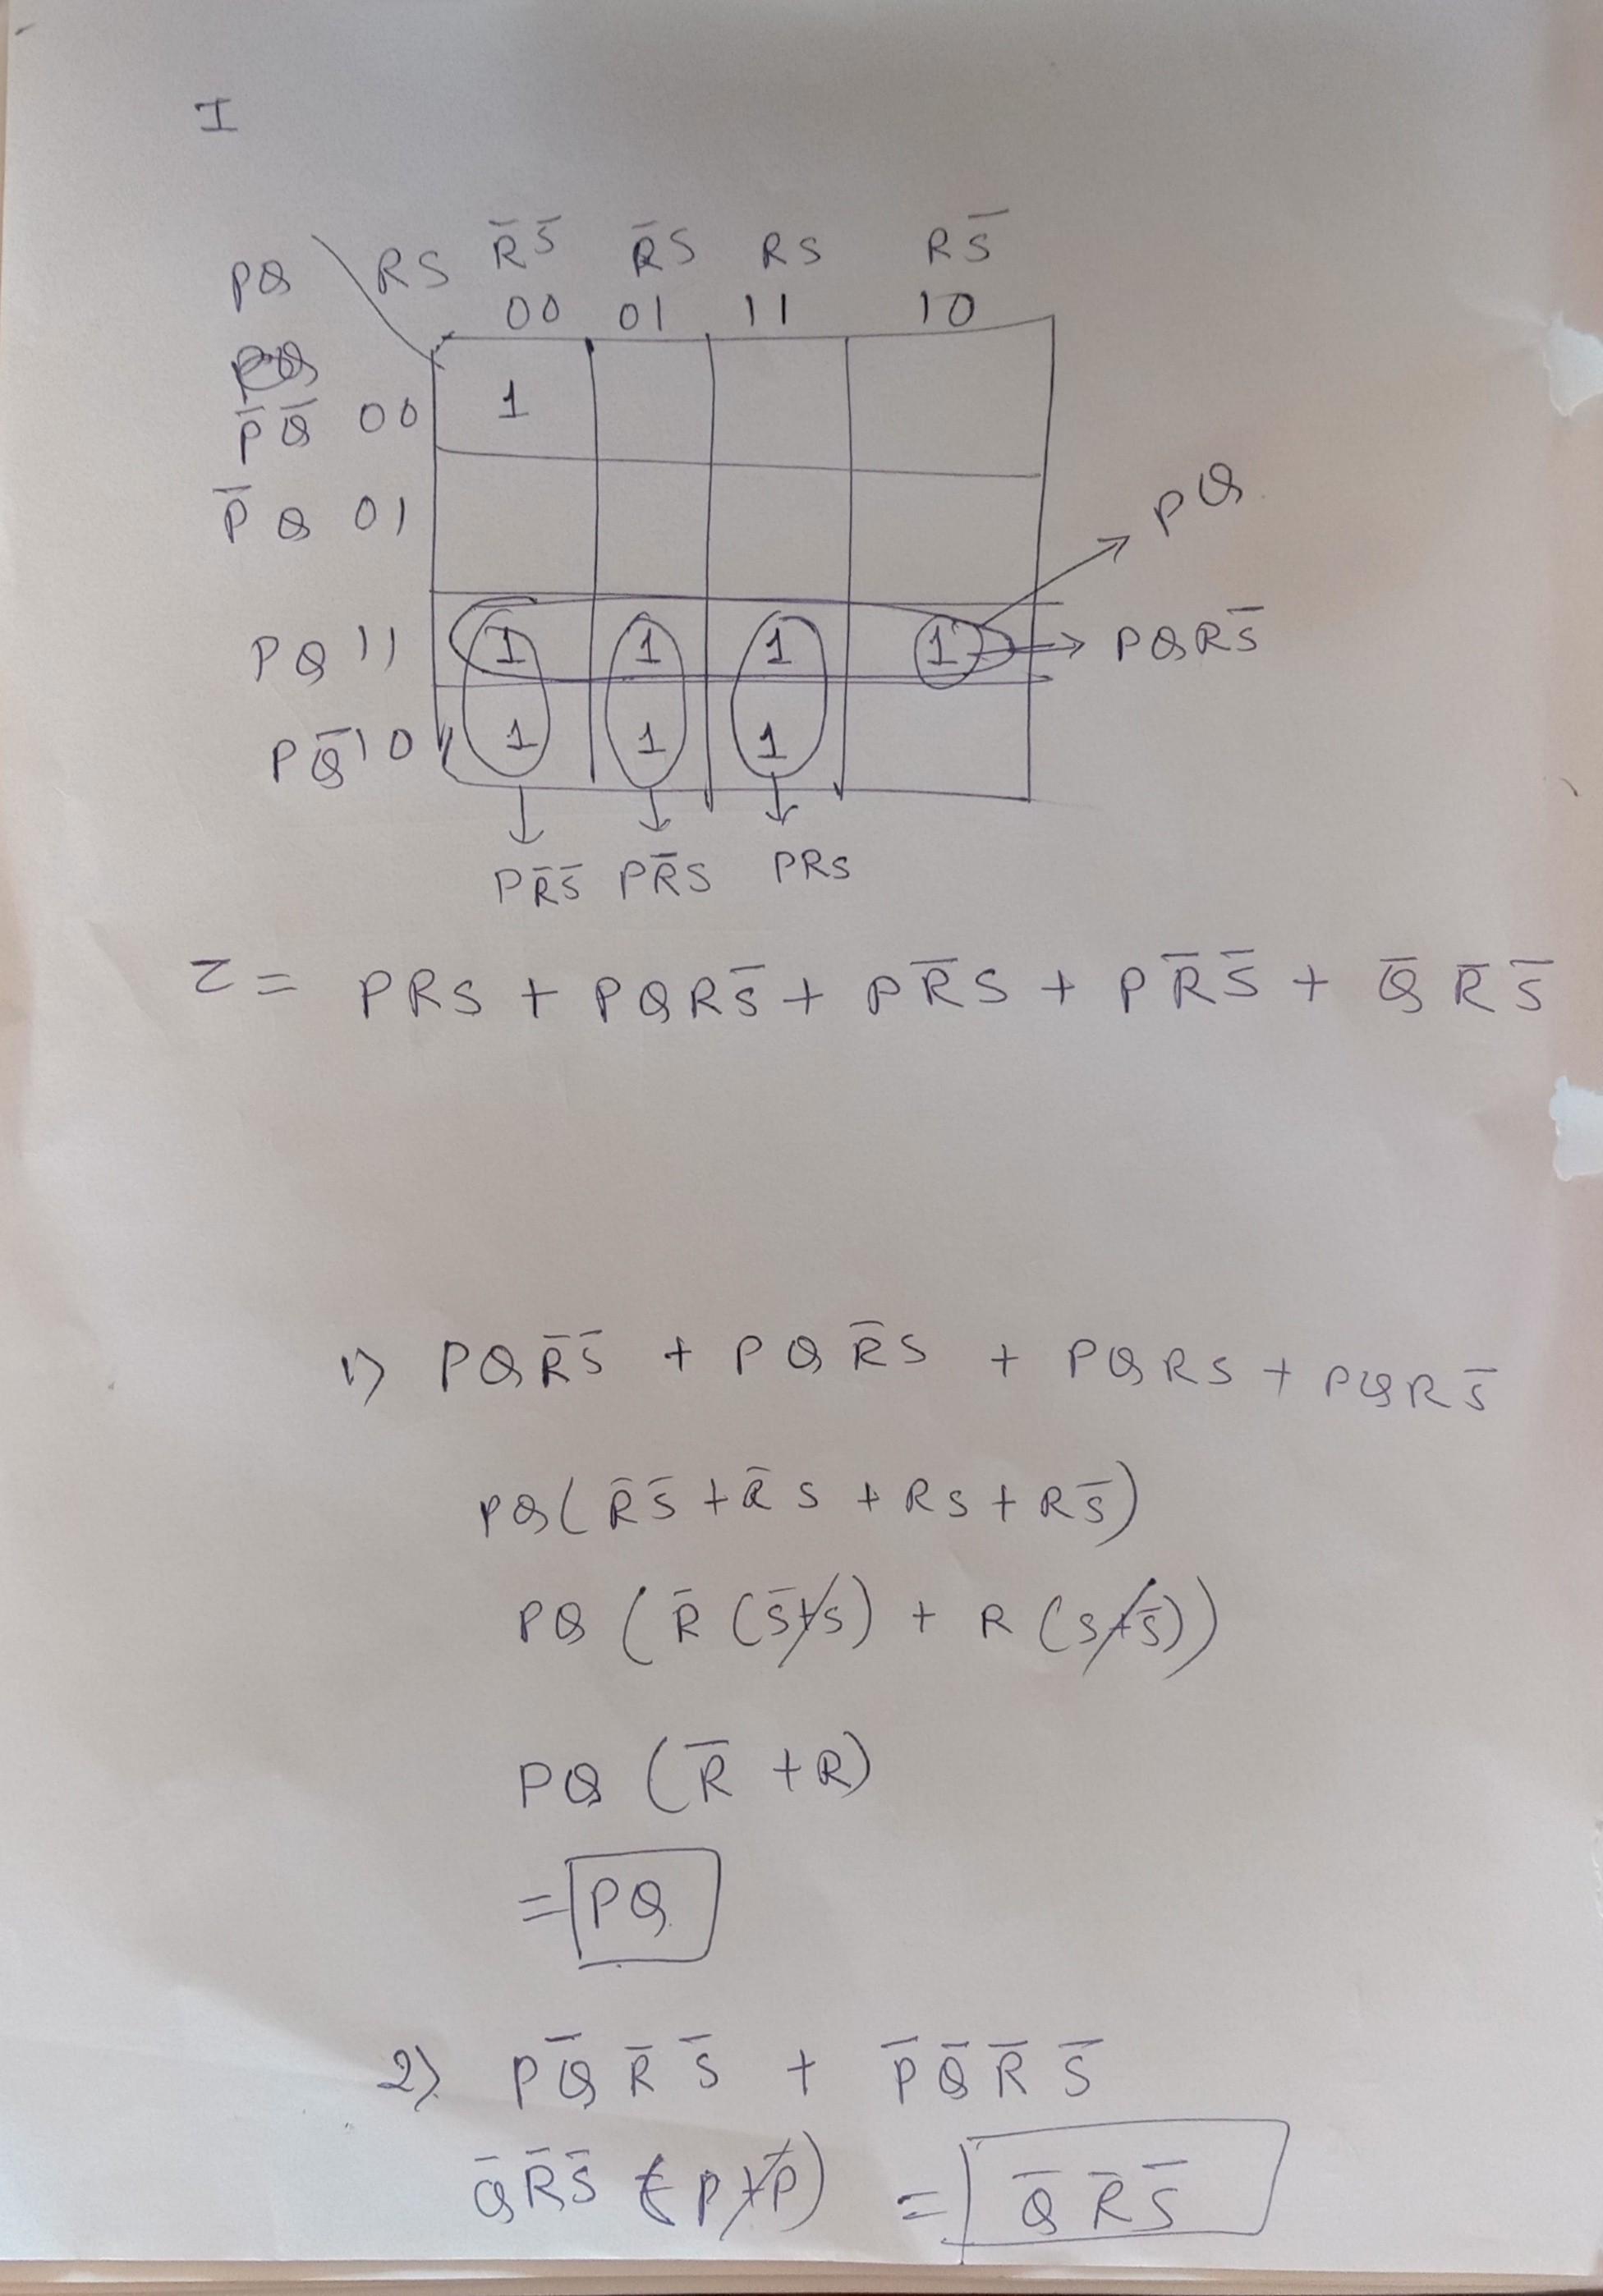 I
PQ \ RS R̄S̄ R̄S RS RS̄
00 01 11 10
P̄Q̄ 00 1
P̄Q 01
PQ
PQ 11 1 1 1 1 PQRS̄
PQ̄ 10 1 1 1
PR̄S̄ PR̄S PRS
Z = PRS + PQRS̄ + PR̄S + PR̄S̄ + Q̄R̄S̄
1) PQR̄S̄ + PQR̄S + PQRS + PQRS̄
PQ(R̄S̄ + R̄S + RS + RS̄)
PQ (R̄ (S̄+S) + R (S+S̄))
PQ (R̄ + R)
= PQ
2) PQ̄R̄S̄ + P̄Q̄R̄S̄
Q̄R̄S̄ (P+P̄) = Q̄R̄S̄